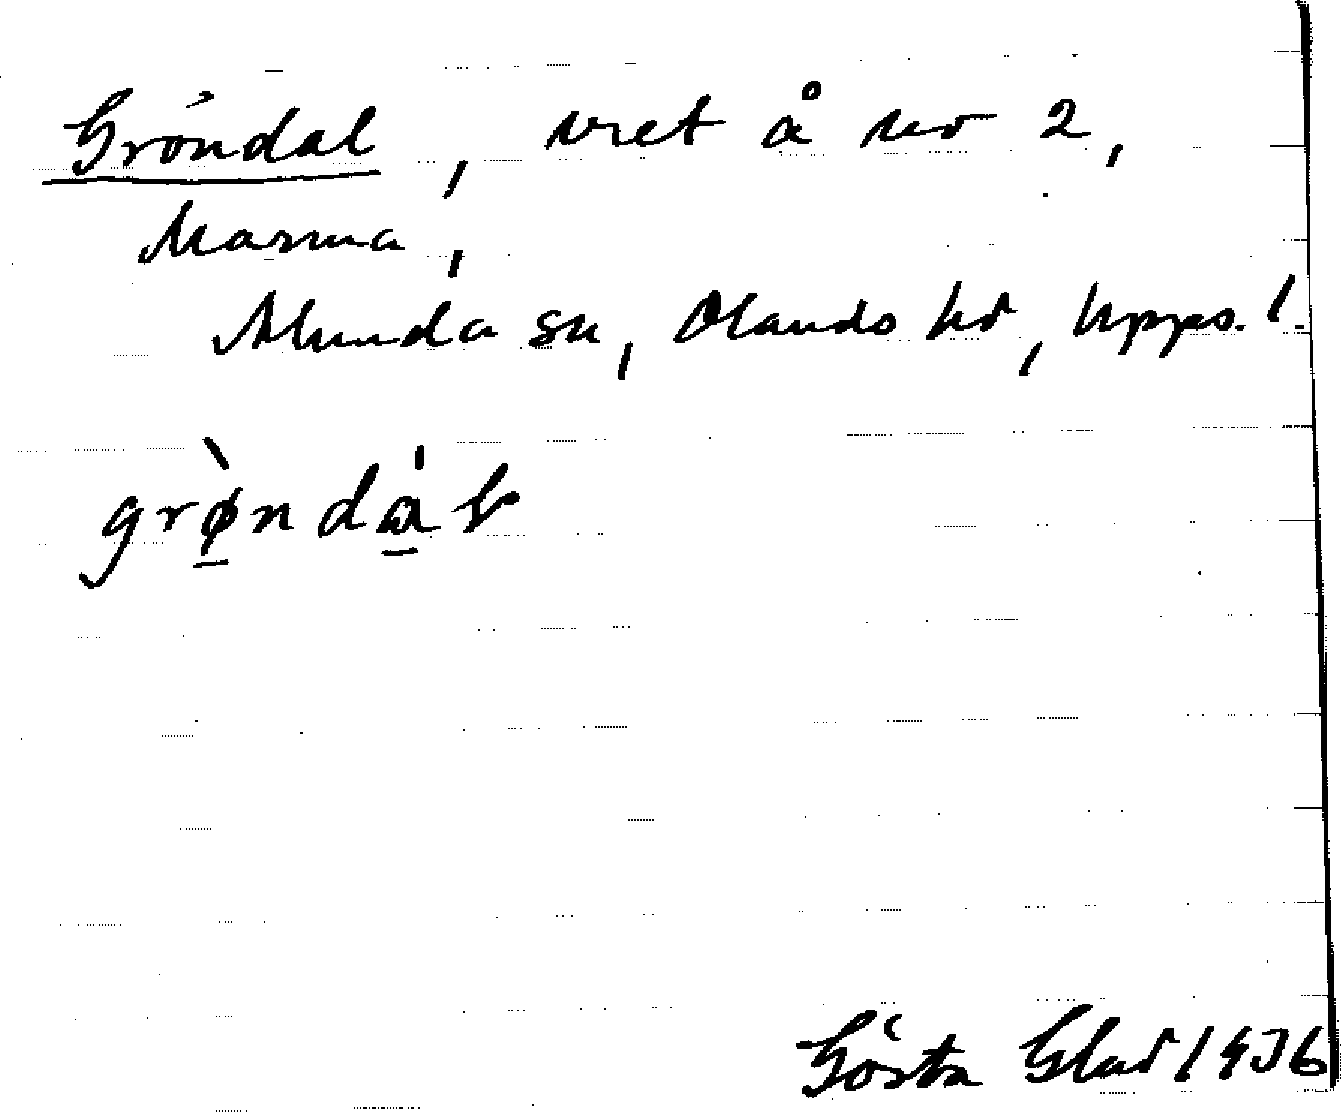 Gröndal, vret å nr 2,
Marma,
Alunda sn, Olands hd, Upps. l.
grøndal
Gösta Glad 1936